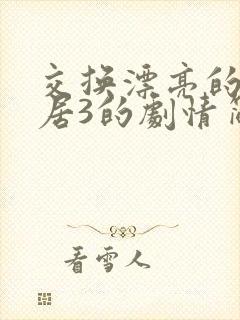 交换漂亮的
居3的劇情
看雪人